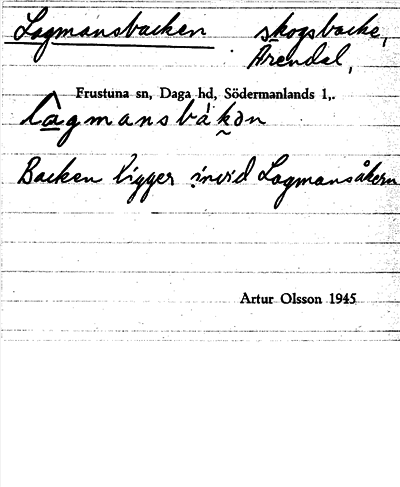 Lagmansbacken skogsbacke,
Årendal,
Frustuna sn, Daga hd, Södermanlands l,.
lâgmansbàkən
Backen ligger invid Lagmansåkern
Artur Olsson 1945